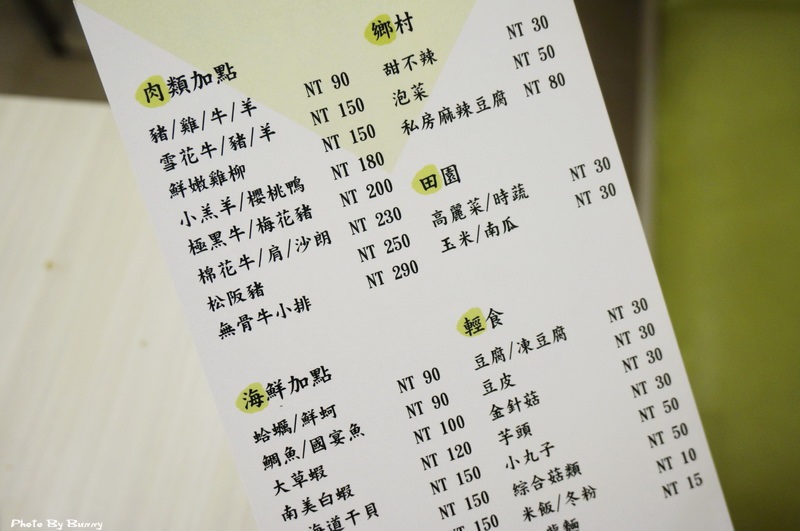 肉類加點
豬/雞/牛/羊 NT 90
雪花牛/豬/羊 NT 150
鮮嫩雞柳 NT 150
小羔羊/櫻桃鴨 NT 180
極黑牛/梅花豬 NT 200
棉花牛/肩/沙朗 NT 230
松阪豬 NT 250
無骨牛小排 NT 290
海鮮加點
蛤蠣/鮮蚵 NT 90
鯛魚/國宴魚 NT 90
大草蝦 NT 100
南美白蝦 NT 120
海道干貝 NT 150
NT 150
NT 150
鄉村
甜不辣 NT 30
泡菜 NT 50
私房麻辣豆腐 NT 80
田園
高麗菜/時蔬 NT 30
玉米/南瓜 NT 30
輕食
豆腐/凍豆腐 NT 30
豆皮 NT 30
金針菇 NT 30
芋頭 NT 30
小丸子 NT 50
綜合菇類 NT 50
米飯/冬粉 NT 10
NT 15
Photo By Bunny